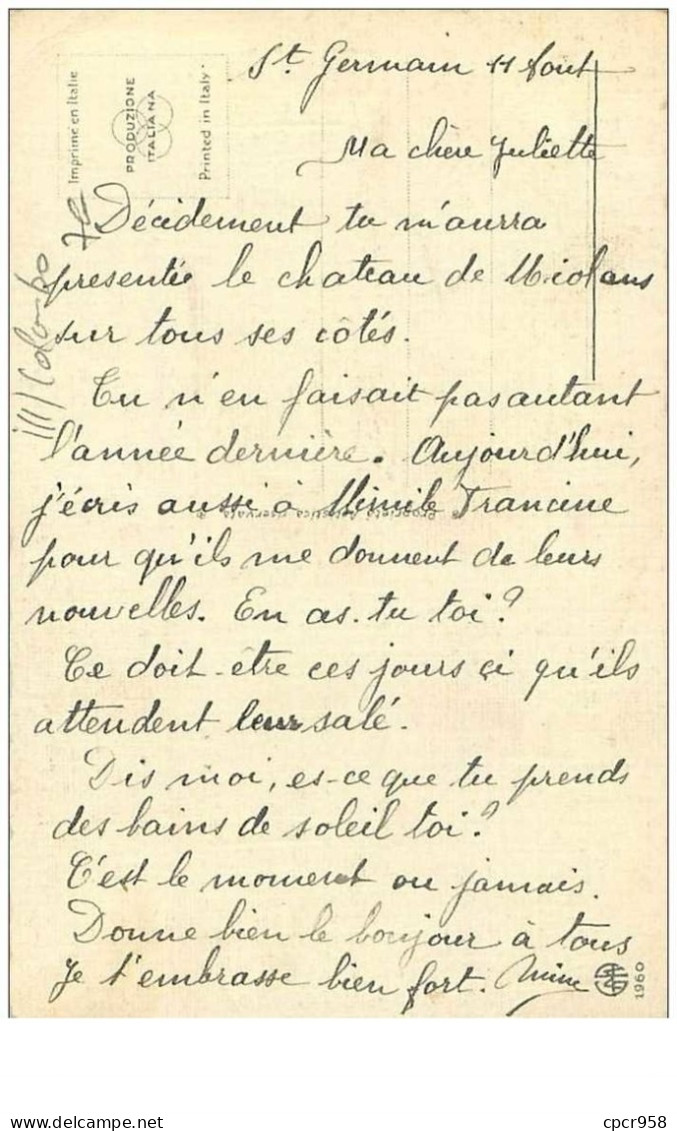 Imprimé en Italie
PRODUZIONE
ITALIANA
Printed in Italy
St Germain 11 Aout
Ma chère Juliette
Décidement tu m'aurra
presentée le chateau de Miolans
sur tous ses côtés.
Tu n'en faisait pas autant
l'année dernière. Aujourd'hui,
j'écris aussi à Mimile Francine
pour qu'ils me donnent de leurs
nouvelles. En as-tu toi?
Ce doit-être ces jours çi qu'ils
attendent leur salé.
Dis moi, es-ce que tu prends
des bains de soleil toi?
C'est le moment ou jamais.
Donne bien le bonjour à tous
Je t'embrasse bien fort. Mime
1960
ill/Colombo
cpcr958